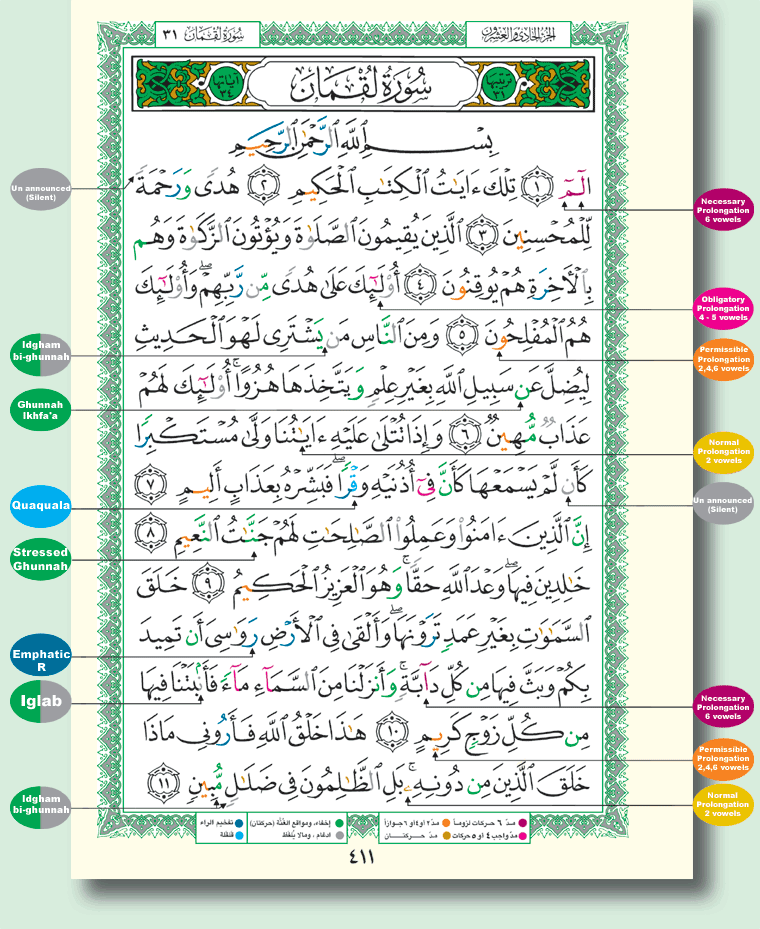 سُورَةُ لُقْمَان ٣١
الجزء الحادي والعشرون
ترتيبها ٣١
سُورَةُ لُقْمَانَ
آياتها ٣٤
بِسْمِ ٱللَّهِ ٱلرَّحْمَٰنِ ٱلرَّحِيمِ
الٓمٓ ١ تِلْكَ ءَايَٰتُ ٱلْكِتَٰبِ ٱلْحَكِيمِ ٢ هُدًى وَرَحْمَةً
لِّلْمُحْسِنِينَ ٣ ٱلَّذِينَ يُقِيمُونَ ٱلصَّلَوٰةَ وَيُؤْتُونَ ٱلزَّكَوٰةَ وَهُم
بِٱلْأَخِرَةِ هُمْ يُوقِنُونَ ٤ أُوْلَٰٓئِكَ عَلَىٰ هُدًى مِّن رَّبِّهِمْ ۖ وَأُوْلَٰٓئِكَ
هُمُ ٱلْمُفْلِحُونَ ٥ وَمِنَ ٱلنَّاسِ مَن يَشْتَرِى لَهْوَ ٱلْحَدِيثِ
لِيُضِلَّ عَن سَبِيلِ ٱللَّهِ بِغَيْرِ عِلْمٍ وَيَتَّخِذَهَا هُزُوًا ۚ أُوْلَٰٓئِكَ لَهُمْ
عَذَابٌ مُّهِينٌ ٦ وَإِذَا تُتْلَىٰ عَلَيْهِ ءَايَٰتُنَا وَلَّىٰ مُسْتَكْبِرًا
كَأَن لَّمْ يَسْمَعْهَا كَأَنَّ فِىٓ أُذُنَيْهِ وَقْرًا ۖ فَبَشِّرْهُ بِعَذَابٍ أَلِيمٍ ٧
إِنَّ ٱلَّذِينَ ءَامَنُوا۟ وَعَمِلُوا۟ ٱلصَّٰلِحَٰتِ لَهُمْ جَنَّٰتُ ٱلنَّعِيمِ ٨
خَٰلِدِينَ فِيهَا ۖ وَعْدَ ٱللَّهِ حَقًّا ۚ وَهُوَ ٱلْعَزِيزُ ٱلْحَكِيمُ ٩ خَلَقَ
ٱلسَّمَٰوَٰتِ بِغَيْرِ عَمَدٍ تَرَوْنَهَا ۖ وَأَلْقَىٰ فِى ٱلْأَرْضِ رَوَٰسِىَ أَن تَمِيدَ
بِكُمْ وَبَثَّ فِيهَا مِن كُلِّ دَآبَّةٍ ۚ وَأَنزَلْنَا مِنَ ٱلسَّمَآءِ مَآءً فَأَنۢبَتْنَا فِيهَا
مِن كُلِّ زَوْجٍ كَرِيمٍ ١٠ هَٰذَا خَلْقُ ٱللَّهِ فَأَرُونِى مَاذَا
خَلَقَ ٱلَّذِينَ مِن دُونِهِۦ ۚ بَلِ ٱلظَّٰلِمُونَ فِى ضَلَٰلٍ مُّبِينٍ ١١
مدّ ٦ حركات لزوماً مدّ ٢ او ٤ او ٦ جوازاً
مدّ واجب ٤ او ٥ حركات مدّ حركتان
إخفاء، ومواقع الغُنَّة (حركتان)
ادغام، ومالا يُلفظ
تفخيم الراء
قلقلة
٤١١
Un announced
(Silent)
Idgham
bi-ghunnah
Ghunnah
Ikhfa'a
Quaquala
Stressed
Ghunnah
Emphatic
R
Iglab
Idgham
bi-ghunnah
Necessary
Prolongation
6 vowels
Obligatory
Prolongation
4 - 5 vowels
Permissible
Prolongation
2,4,6 vowels
Normal
Prolongation
2 vowels
Un announced
(Silent)
Necessary
Prolongation
6 vowels
Permissible
Prolongation
2,4,6 vowels
Normal
Prolongation
2 vowels